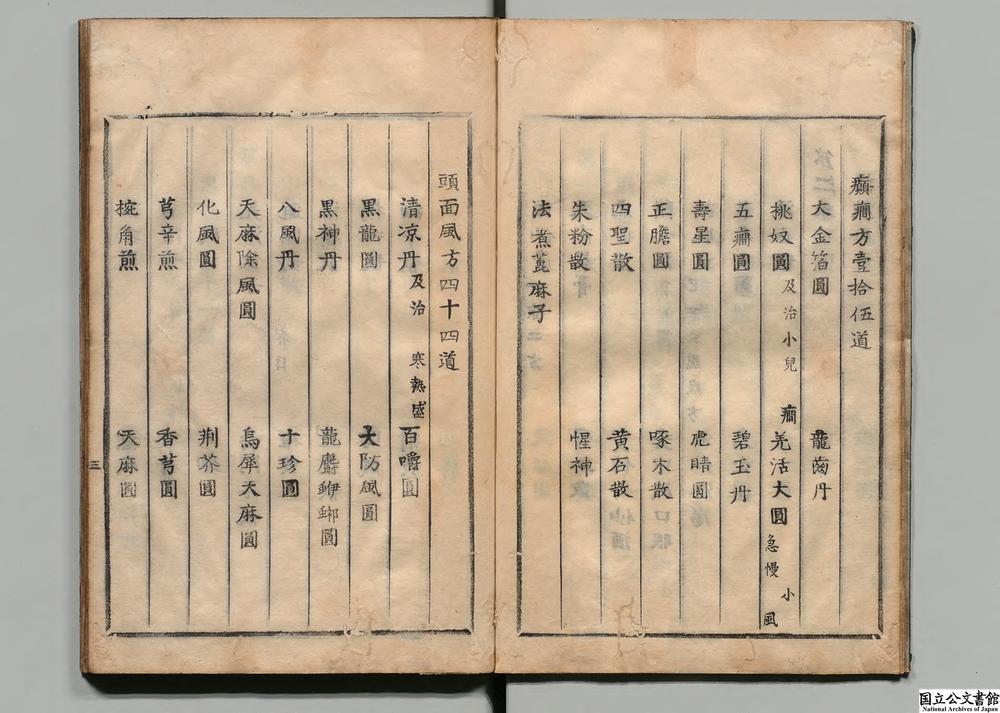 癲癇方壹拾伍道
大金箔圓 龍齒丹
挑奴圓及治小兒癇 羌活大圓急慢小風
五癇圓 碧玉丹
壽星圓 虎睛圓
正膽圓 啄木散
四聖散 黃石散
朱粉散 惺神散
法煮蓖麻子
頭面風方四十四道
清凉丹及治寒熱盛 百嚼圓
黑龍圓 大防風圓
黑神丹 龍麝蚵蚾圓
八風丹 十珍圓
天麻除風圓 烏犀天麻圓
化風圓 荊芥圓
芎辛煎 香芎圓
椀角煎 天麻圓
三
国立公文書館
National Archives of Japan